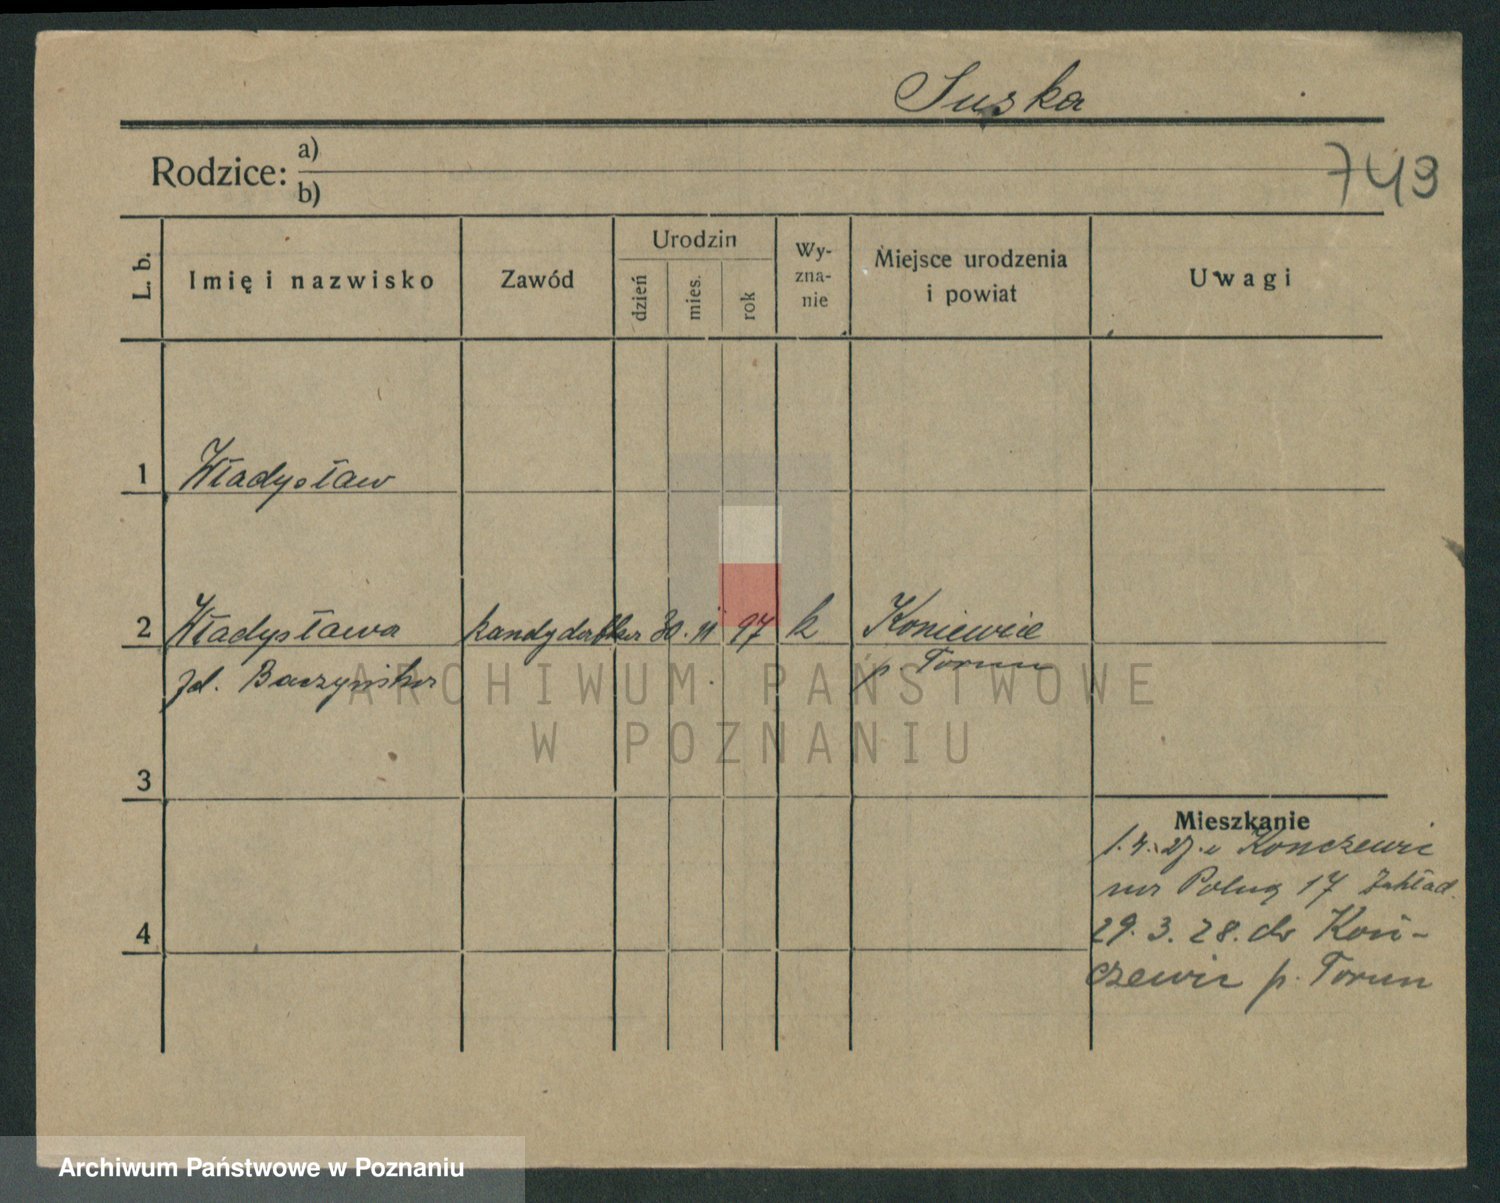 Suska
743
Rodzice: a)
b)
L. b.
Imię i nazwisko
Zawód
Urodzin
dzień
mies.
rok
Wy-
zna-
nie
Miejsce urodzenia
i powiat
Uwagi
1 Władysław
2 Władysława 30. 11 97 k Koniewice
zd. Baczyńska p. Toruń
3
4
Mieszkanie
1. 4. 27. z Konczewic
na Polną 17 Zakład
29. 3. 28. do Koń-
czewic p. Toruń
ARCHIWUM PAŃSTWOWE
W POZNANIU
Archiwum Państwowe w Poznaniu